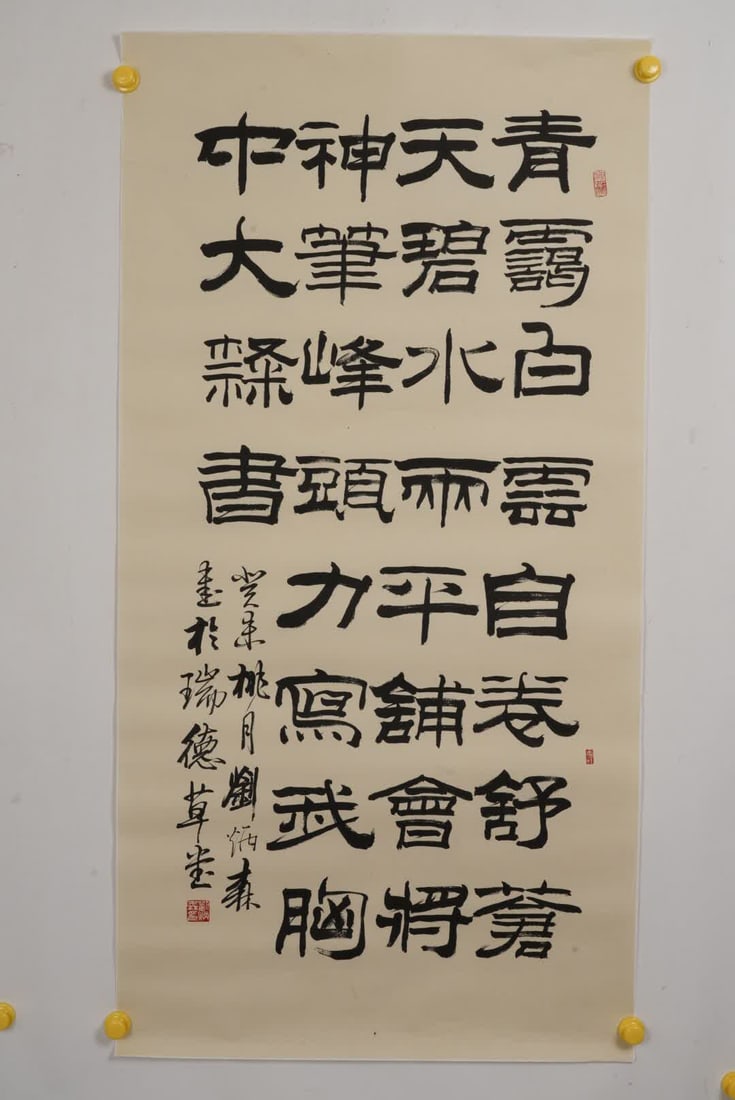 青靄白雲自卷舒蒼
天碧水兩平舖會將
神筆峰頭力寫我胸
中大隸書
癸未桃月劉炳森
書於瑞德草堂